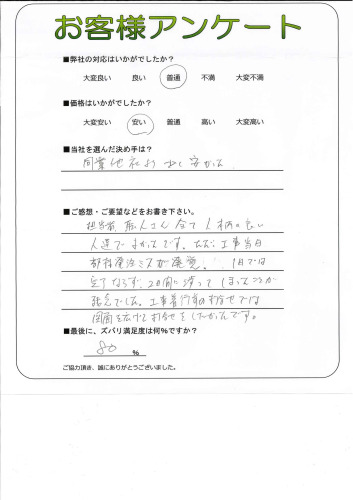 お客様アンケート
■弊社の対応はいかがでしたか?
大変良い 良い 普通 不満 大変不満
■価格はいかがでしたか?
大変安い 安い 普通 高い 大変高い
■当社を選んだ決め手は?
同業他社より少し安かった
■ご感想・ご要望などをお書き下さい。
担当者、職人さん全て人柄の良い
人達でよかったです。ただ、工事当日
部材発注ミスが発覚! 1日では
完了ならず、2日間に渡ってしまったところが
残念でした。工事着行前の打合せでは
図面を広げて打合せをしたかったです。
■最後に、ズバリ満足度は何%ですか?
80 %
ご協力頂き、誠にありがとうございました。